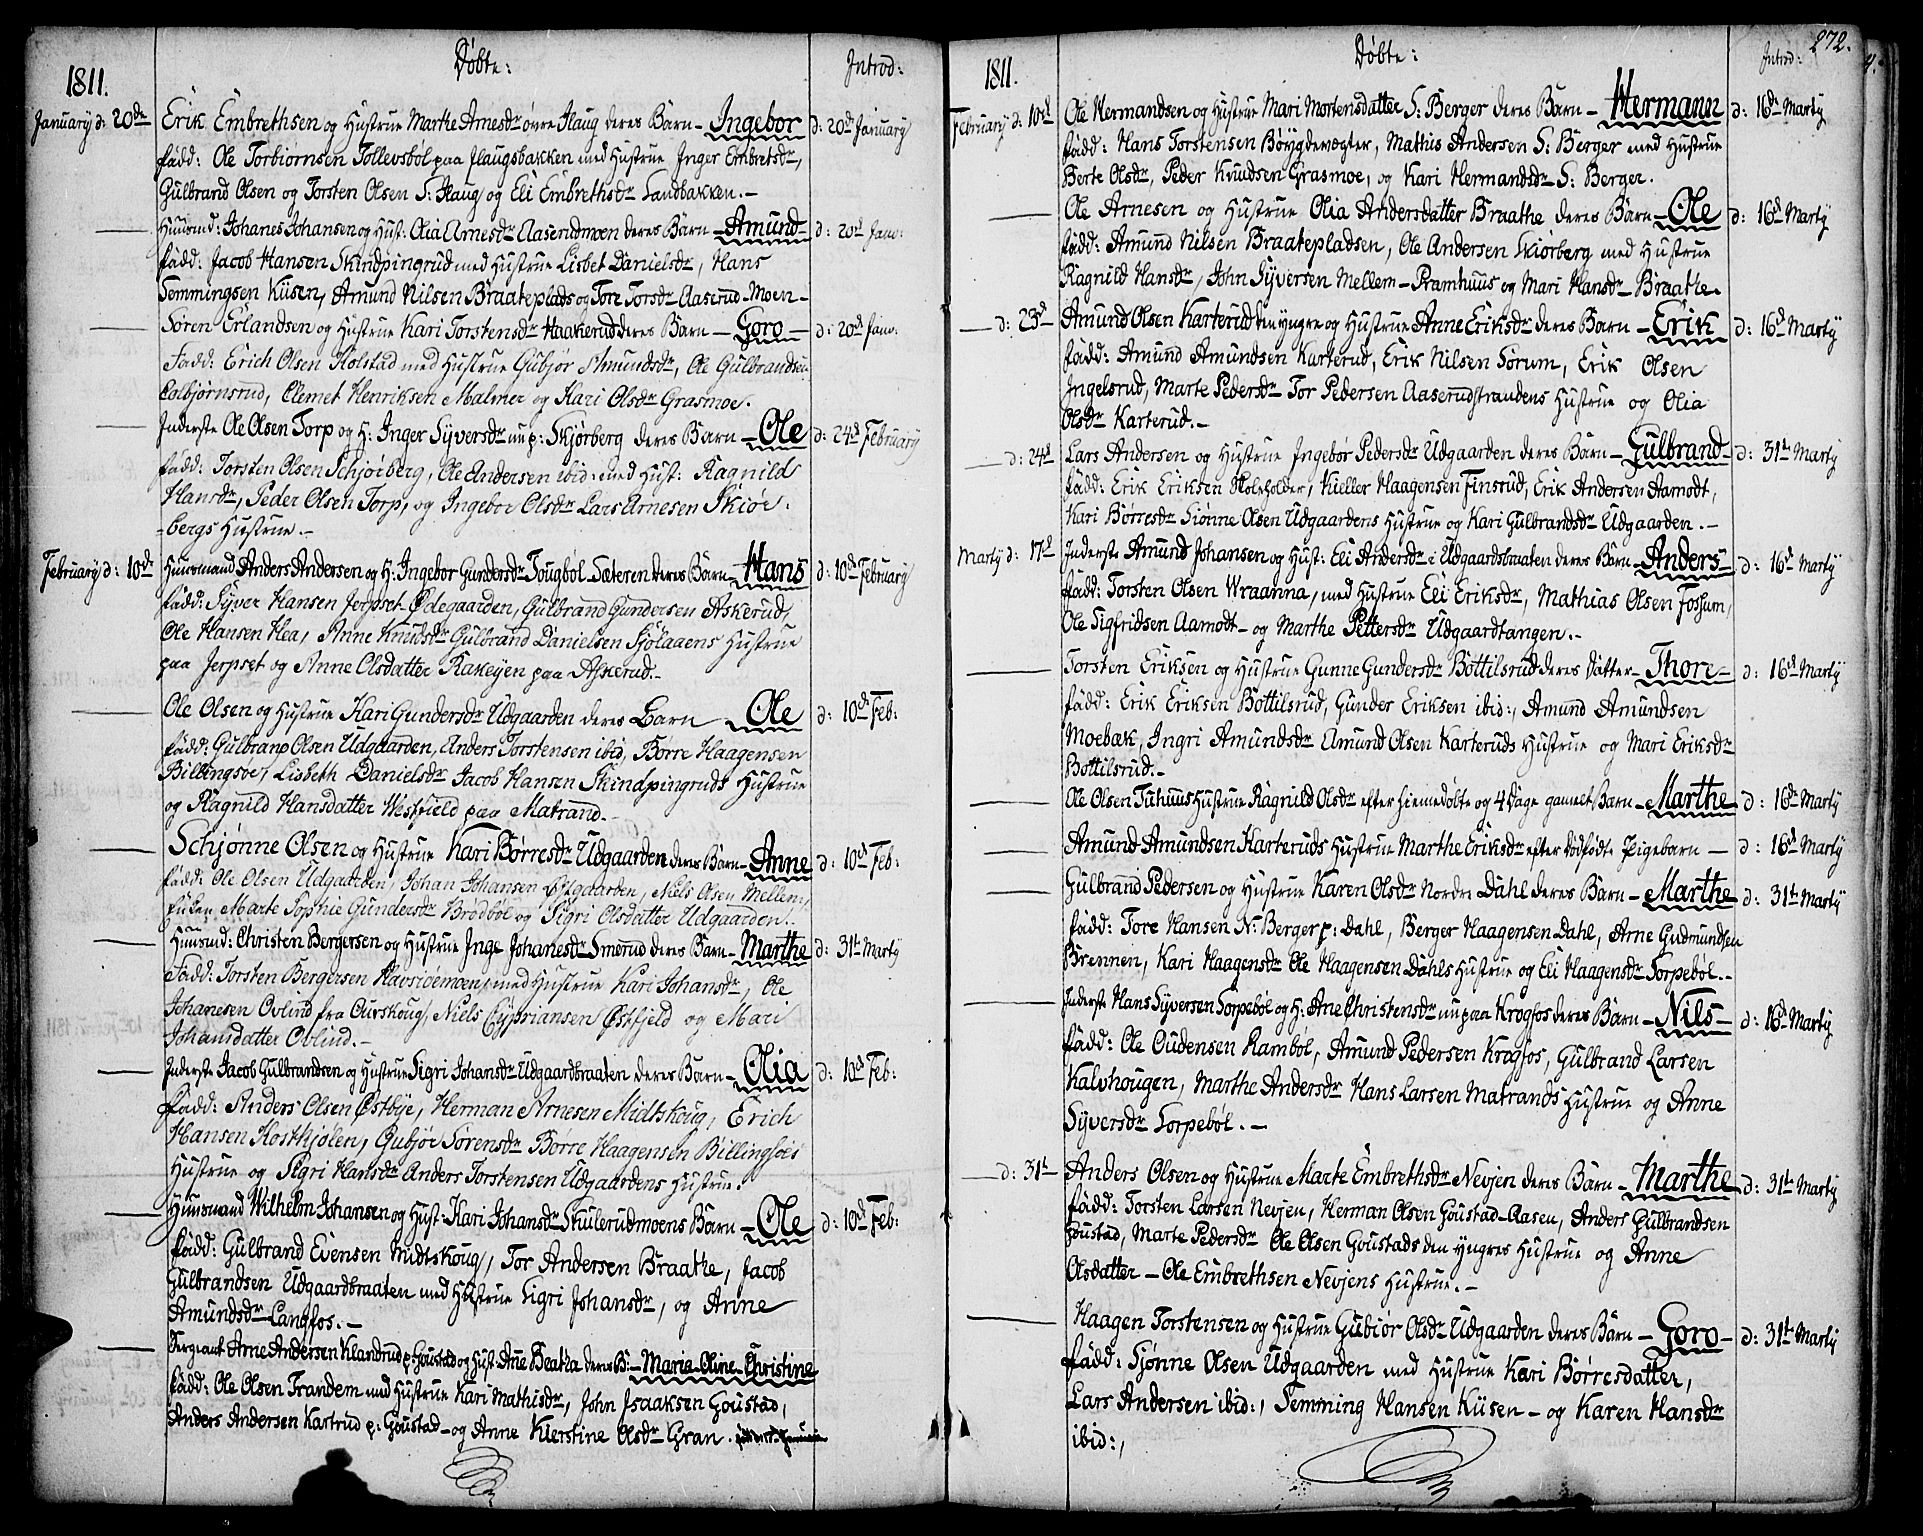 1811. Døbte: Introd:
January d: 20de Erik Embrethsen og Hustrue Marthe Arnesdr øvre Haug deres Barn – Ingebor d: 20d January
fadd: Ole Torbiørnsen Tollevsbøl paa Haugsbakken med Hustrue Inger Embretsdr,
Gulbrand Olsen og Torsten Olsen S: Haug, og Eli Embrethsdr Sandbakken. –
Huusmd: Johanes Johansen og Hust: Olia Arnesdr Aaserudmoen deres Barn – Amund – d: 20d Janv:
fadd: Jacob Hansen Skindpingrud med Hustrue Lisbet Danielsdr, Hans
Semmingsen Kiisen, Amund Nilsen Braateplads og Tore Torsdr Aaserud-Moen –
Søren Erlandsen og Hustrue Kari Torstensdr Haakerud deres Barn – Goro – d: 20d Janv:
Fadd: Erich Olsen Kolstad med Hustrue Gubjør Amundsdr, Ole Gulbrandsen
Colbjørnsrud, Clemet Henriksen Malmer og Kari Olsdr Grasmoe.
Inderste Ole Olsen Torp og H: Inger Syversdr nu p: Skjørberg deres Barn – Ole d: 24d February
fadd: Torsten Olsen Schjørberg, Ole Andersen ibid: med Hust: Ragnild
Hansdr, Peder Olsen Torp, og Ingebor Olsdr Lars Arnesen Skiør-
-bergs Hustrue. –
February d: 10de Huusmand Anders Andersen og H: Ingebor Gundersdr Tougbøl-Sæteren deres Barn – Hans d: 10d February
fadd: Syver Hansen Jerpset-Ødegaarden, Gulbrand Gundersen Askerud,
Ole Hansen Hea, Anne Knudsdr Gulbrand Danielsen Sjølaaens Hustrue
paa Jerpset og Anne Olsdatter Rakeyen paa Askerud. –
Ole Olsen og Hustrue Kari Gundersdr Udgaarden deres Barn – Ole d: 10d Feb:
fadd: Gulbranp Olsen Udgaarden, Anders Torstensen ibid, Børre Haagensen
Billingsøe, Lisbeth Danielsdr Jacob Hansen Skindpingruds Hustrue
og Ragnild Hansdatter Westfield paa Matrand. –
Schjønne Olsen og Hustrue Kari Børresdr Udgaarden deres Barn – Anne d: 10d Feb:
fadd: Ole Olsen Udgaarden, Johan Johansen Østgaarden, Niels Olsen Mellem,
fuken Marte Sophie Gundersdr Brødbøl og Sigri Olsdatter Udgaarden. –
Huusmd: Christen Bergersen og Hustrue Inge Johanesdr Smørud deres Barn – Marthe d: 31t Marty
Fadd: Torsten Bergersen Havsiøemoen, med Hustrue Kari Johansdr, Ole
Johanesen Ovlind fra Ourskoug, Niels Cypriansen Østfjeld og Mari
Johansdatter Ovlind. –
Inderste Jacob Gulbrandsen og Hustrue Sigri Johansdr Udgaardbraaten deres Barn – Olia d: 10d Feb:
fadd: Anders Olsen Østbye, Herman Arnesen Midtskoug, Erich
Hansen Kostkjølen, Gubjør Sørensdr Børre Haagensen Billingsøes
Hustrue og Sigri Hansdr Anders Torstensen Udgaardens Hustrue.
Huusmand Wilhelm Johansen og Hust: Kari Johansdr Skulerudmoens Barn – Ole d: 10d Feb:
fadd: Gulbrand Evensen Midtskoug, Tor Andersen Braathe, Jacob
Gulbrandsen Udgaardbraaten med Hustrue Sigri Johansdr, og Anne
Amundsdr Langfos. –
Sergeant Arne Andersen Klandrud p: Goustad og Hust: Ane Beatha deres B: – Maria Oline Christine
fadd: Ole Olsen Trandem med Hustrue Kari Mathisdr, John Isaaksen Goustad,
Anders Andersen Kartrud p: Goustad – og Anne Kierstine Olsdr Gran.
272.
1811. Døbte: Introd:
February d: 10d Ole Hermandsen og Hustrue Mari Mortensdatter S: Berger deres Barn – Hermann d: 16de Marty
fadd: Hans Torstensen Bøygdevogter, Mathis Andersen S: Berger med Hustrue
Berte Olsdr, Peder Knudsen Grasmoe, og Kari Hermandsdr S: Berger.
Ole Arnesen og Hustrue Olia Andersdatter Braathe deres Barn – Ole d: 16d Marty
fadd: Amund Nilsen Braatepladsen, Ole Andersen Skiørberg med Hustrue
Ragnild Hansdr, John Syversen Mellem-Pramhuus og Mari Hansdr Braathe.
d: 23d Amund Olsen Karterud den yngre og Hustrue Anne Eriksdr deres Barn – Erik d: 16d Marty
fadd: Amund Amundsen Karterud, Erik Nilsen Sorum, Erik Olsen
Ingelsrud, Marte Pedersdr Tor Pedersen Aaserudstrandens Hustrue og Olia
Olsdr Karterud. –
d: 24d Lars Andersen og Hustrue Ingebør Pedersdr Udgaarden deres Barn – Gulbrand – d: 31t Marty
fadd: Erik Eriksen Skoleholder, Kieller Haagensen Finsrud, Erik Andersen Aamodt,
Kari Børresdr Siønne Olsen Udgaardens Hustrue og Kari Gulbrandsdr Udgaarden. –
Marty d: 17d Inderste Amund Johansen og Hust: Eli Andersdr i Udgaardsbraaten deres Barn – Anders – d: 16d Marty
fadd: Torsten Olsen Wraanna, med Hustrue Eli Eriksdr, Mathias Olsen Fossum,
Ole Sigfridsen Aamodt – og Marthe Pettersdr Udgaardtangen. –
Torsten Eriksen og Hustrue Gunne Gundersdr Bottilsrud deres Datter – Thore – d: 16d Marty
fadd: Erik Eriksen Bottilsrud, Gunder Eriksen ibid:, Amund Amundsen
Moebæk, Ingri Amundsdr Amund Olsen Karteruds Hustrue og Mari Eriksdr
Bottilsrud. –
Ole Olsen Tuhuus Hustrue Ragnild Olsdr efter hiemedøbte og 4 Dage gamelt Barn – Marthe d: 16d Marty
Amund Amundsen Karteruds Hustrue Marthe Eriksdr efter dødfødte Pigebarn – d: 16d Marty
Gulbrand Pedersen og Hustrue Karen Olsdr Nordre Dahl deres Barn – Marthe d: 31t Marty
fadd: Tore Hansen N: Berger p: Dahl, Berger Haagensen Dahl, Arne Gudmundsen
Brennen, Kari Haagensdr Ole Haagensen Dahls Hustrue og Eli Haagensdr Torpebøl. –
Inderste Hans Syversen Torpebøl og H: Ane Christensdr nu paa Krogfos deres Barn – Nils – d: 16d Marty
fadd: Ole Oudensen Rambøl, Amund Pedersen Krogfos, Gulbrand Larsen
Kalvhougen, Marthe Andersdr Hans Larsen Matrands Hustrue og Anne
Syversdr Torpebøl. –
d: 31t Anders Olsen og Hustrue Marte Embrethsdr Nevjen deres Barn – Marthe d: 31t Marty
fadd: Torsten Larsen Nevjen, Herman Olsen Goustad-Aasen, Anders Gulbrandsen
Goustad, Marte Pedersdr Ole Olsen Goustads den yngres Hustrue og Anne
Olsdatter – Ole Embrethsen Nevjens Hustrue. –
Haagen Torstensen og Hustrue Gubiør Olsdr Udgaarden deres Barn – Goro – d: 31t Marty
fadd: Sjønne Olsen Udgaarden med Hustrue Kari Børresdatter,
Lars Andersen ibid:, Semming Hansen Kiisen – og Karen Hansdr
ibid:,